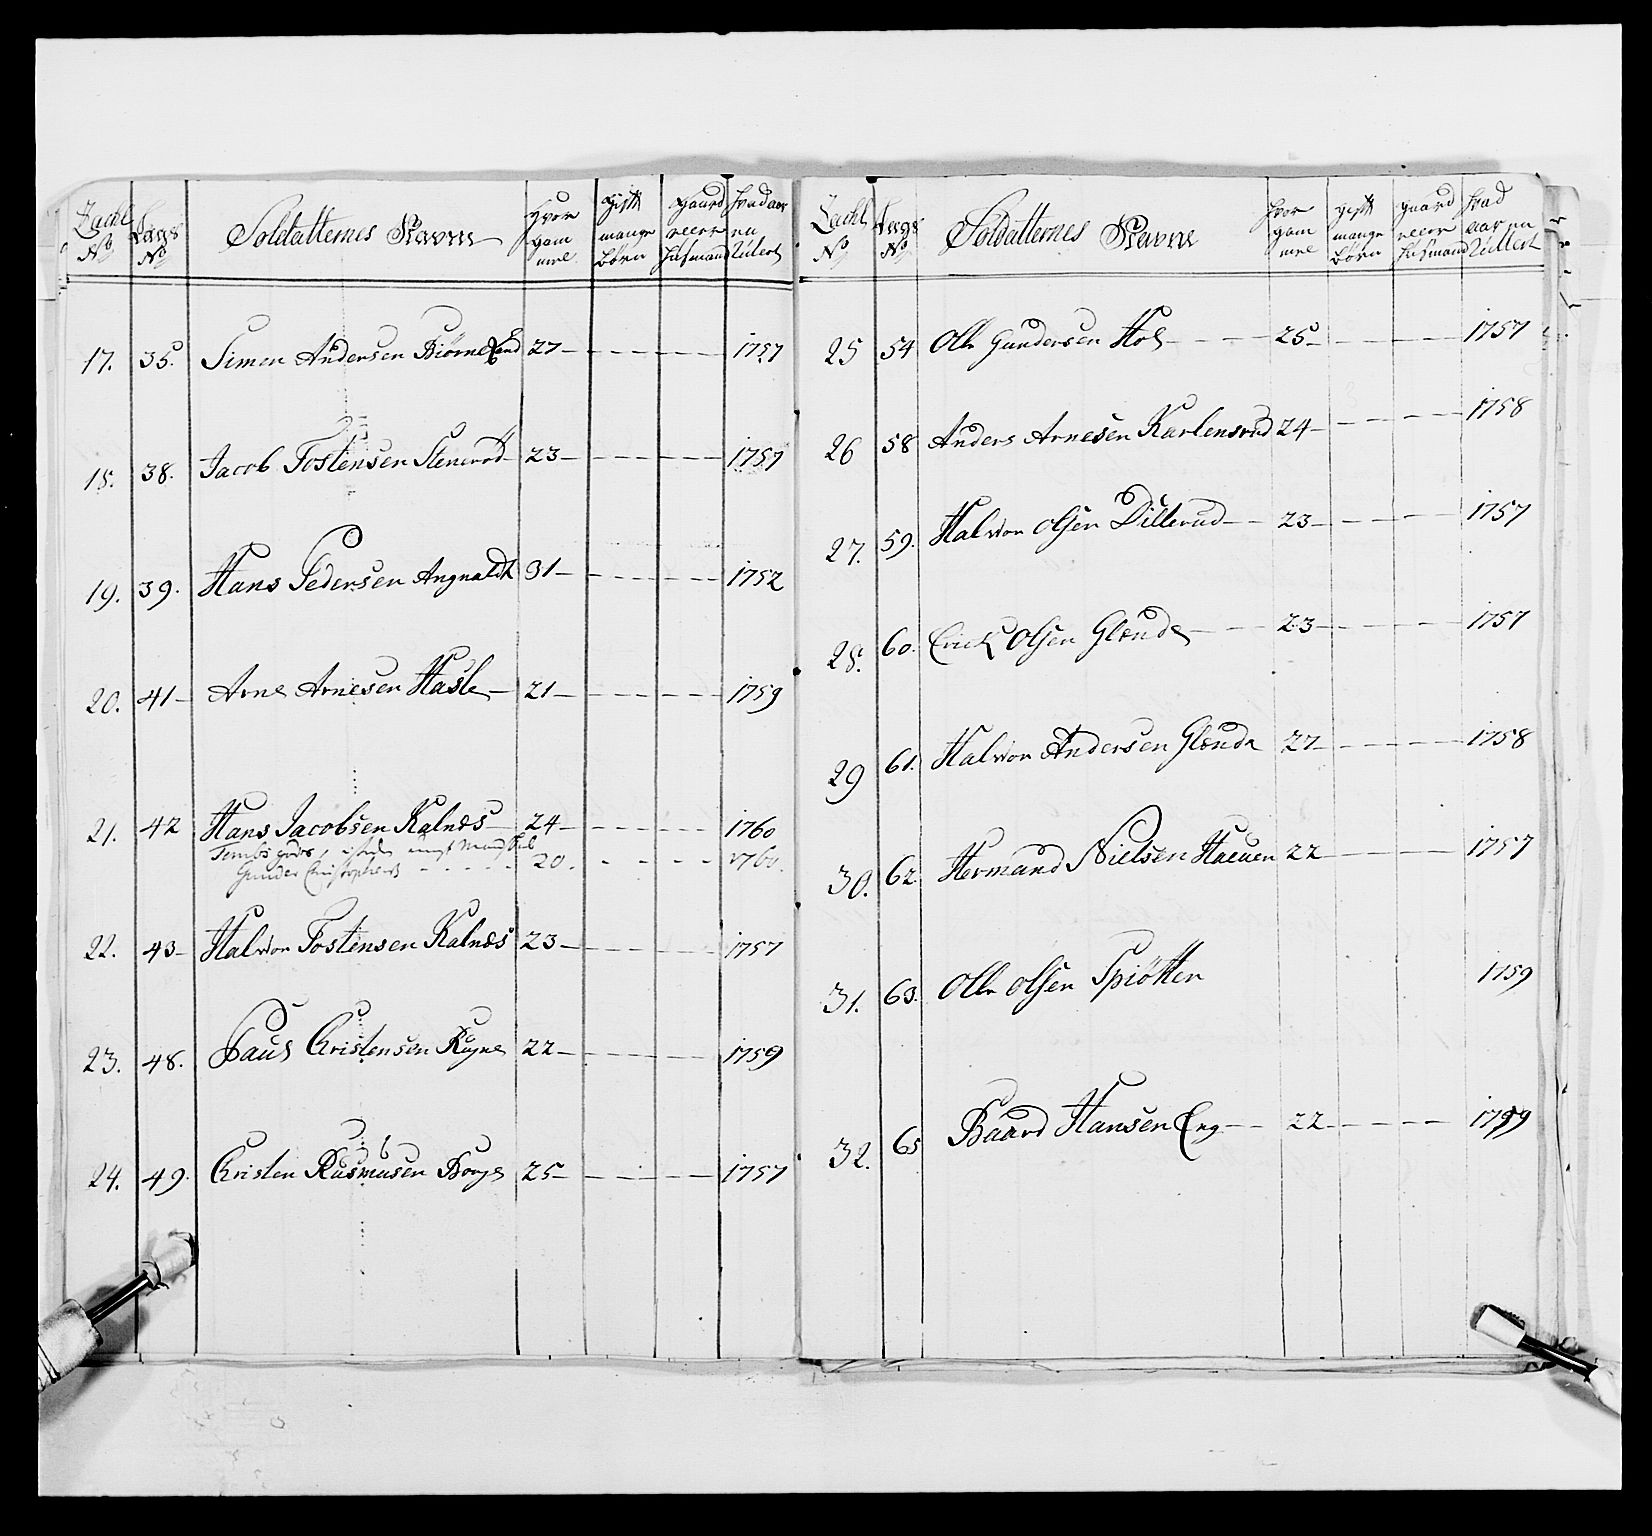 Zachl No | Lægs No | Soldatternes Navne | Hvor gam mel | gift mange Börn | gaard eller Husmand | Hvad aar nu Rullert
17. 35. Simon Andersen Biörneland 27 - - - - 1757
18. 38. Jacob Tostensen Stenerød 23 - - - - 1757
19. 39. Hans Pedersen Angnaldt 31 - - - - 1752
20. 41 Arne Arnesen Hasle 21 - - - - 1759
21. 42 Hans Jacobsen Kalnæs 24 - - - - 1760
Gunder Christophers - - - - 20. - - - - 1760.
22. 43 Halvor Tostensen Kalnæs 23 - - - - 1757
23. 48. Paul Christensen Rugne 22 - - - - 1759
24. 49. Christen Rasmusen Borge 25 - - - - 1757
Zachl No | Lægs No | Soldatternes Navne | Hvor gam mel | gift mange Börn | gaard eller Husmand | Hvad aar nu Rullert
25 54 Olle Gundersen Hol - - - 25 - - - - 1757
26 58 Anders Arnesen Karlensrud 24 - - - - 1758
27. 59. Halvor Olsen Dillerud - - 23 - - - - 1757
28. 60. Erick Olsen Glende - - 23 - - - - 1757
29 61. Halvor Andersen Glende 27 - - - - 1758
30. 62 Hermand Nielsen Hauen 22 - - - - 1757
31. 63. Olle Olsen Spiötten 1759
32. 65 Baard Hansen Eng - - 22 - - - - 1759